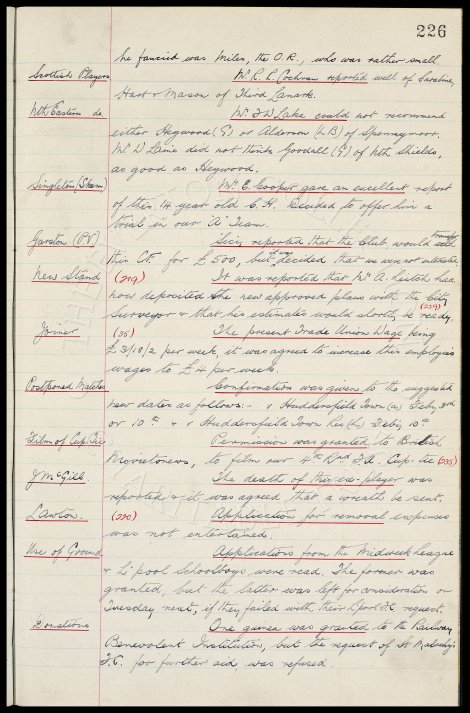 226
he fancied was Miles, the O.R., who was rather small.
Scottish Players Mr. R. L. Cochran reported well of Carabine,
Hart & Mason of Third Lanark.
Nth Eastern do. Mr. F W Lake could not recommend
either Hegwood (G) or Alderson (LB) of Spennymoor.
Mr. W Laine did not think Goodall (G) of Nth Shields,
as good as Hegwood.
Singleton (Sham) Mr. E. Cooper gave an excellent report
of this 14 year old C.H. Decided to offer him a
trial in our "A" Team.
Garston (P.V) Secy. reported that the Club would transfer
this Ct. for £500, but it was decided that we were not interested
New Stand (219) It was reported that Mr A. Leitch had
now deposited the new approved plans with the City
Surveyor & that his estimates would shortly be ready. (229)
Joiner (35) The present Trade Union Wage being
£3/18/2 per week, it was agreed to increase this employees
wages to £4 per week.
Postponed Matches Confirmation was given to the suggested
new dates as follows:- v Huddersfield Town (a) Feby. 3rd
or 10th & v Huddersfield Town Res (h) Feby. 10th
Film of Cup Tie Permission was granted to British
Movietonews, to film our 4th Rnd F.A. Cup-tie (235)
J McGill. The death of this ex-player was
reported & it was agreed that a wreath be sent.
Lawton. (220) Application for removal expenses
was not entertained.
Use of Ground Applications from the Midweek League
& L'pool Schoolboys were read. The former was
granted, but the latter was left for consideration on
Tuesday next, if they failed with their L'pool F.C. request.
Donations One guinea was granted to the Railway
Benevolent Institution, but the request of St Malachy's
F.C. for further aid was refused.